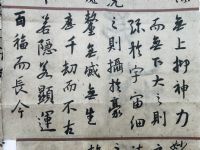 無上抑神力
而無下大之則
弥於宇宙細
之則攝於豪
釐無滅無生
歷千劫而不古
若隱若顯運
百福而長今